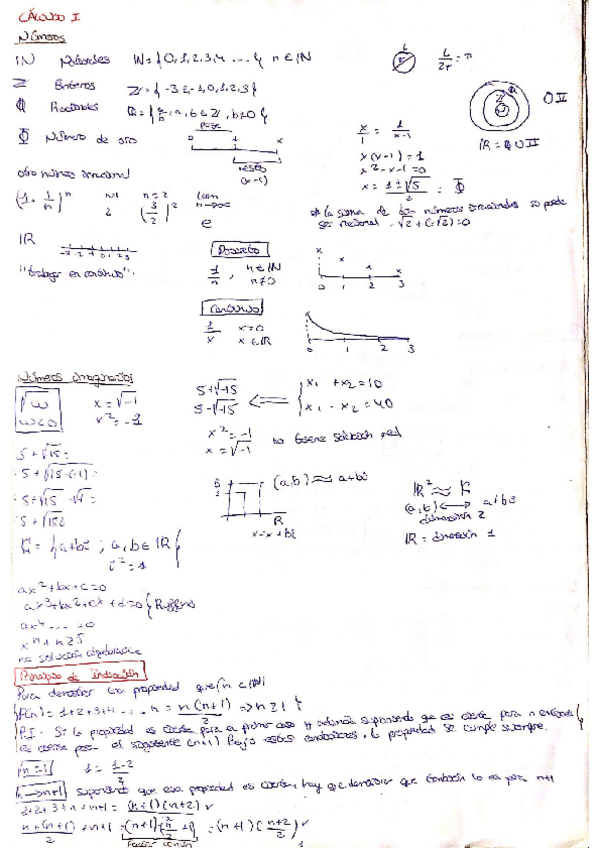 CÁLCULO I.
Números
ℕ Naturales ℕ = {0,1,2,3,4 ... } n ∈ ℕ
ℤ Enteros ℤ = {-3,-2,-1,0,1,2,3}
ℚ Racionales ℚ = {a/b ; a, b ∈ ℤ, b≠0}
L/2r = π
ℝ = ℚ ∪ 𝕀
Φ Número de oro
x/1 = 1/(x-1)
x(x-1) = 1
x² - x - 1 = 0
x = (1±√5)/2 = Φ
resto
(x-1)
otro número irracional
(1+1/n)ⁿ n=1 n=2
2 (3/2)²
n→∞
e
la suma de dos números irracionales sí puede
ser racional √2 + (-√2) = 0
ℝ
-3 -2 -1 0 1 2 3
"trabajar en continuo".
Discreto
1/n , n ∈ ℕ
n≠0
0 1 2 3
Continuo
1/x x>0
x ∈ ℝ
0 1 2 3
Números imaginarios
√w
w<0
x = √-1
x² = -1
5+√-15
5-√-15
x₁ + x₂ = 10
x₁ · x₂ = 40
x² = -1
x = √-1
no tiene solución real
5 + √-15 =
5 + √15·(-1) =
5 + √15 · √-1 =
5 + √15 i
(a,b) ≈ a+bi
ℝ
ℝ² ≈ ℂ
(a,b) ⟷ a+bi
dimensión 2
ℝ = dimensión 1
ℂ = {a+bi ; a, b ∈ ℝ}
ax²+bx+c=0
ax³+bx²+cx+d=0 } Ruffini
ax⁴ ... = 0
xⁿ n≥5
no solución
Principio de inducción
Para demostrar una propiedad que (n ∈ ℕ)
P(n) = 1+2+3+4 ... n = n(n+1)/2 => n≥1
P.I. - Si la propiedad es cierta para el primer caso y además suponiendo que es cierta para n entonces
es cierta para el siguiente (n+1) Bajo estas condiciones, la propiedad se cumple siempre.
n=1 1 = 1·2/2
n→n+1 suponiendo que esa propiedad es cierta, hay que demostrar que también lo es para n+1
1+2+3+n+n+1 = (n+1)(n+2)/2 ✓
n(n+1)/2 + n+1 = (n+1)(n/2+1) = (n+1)(n+2/2) ✓
Factor común